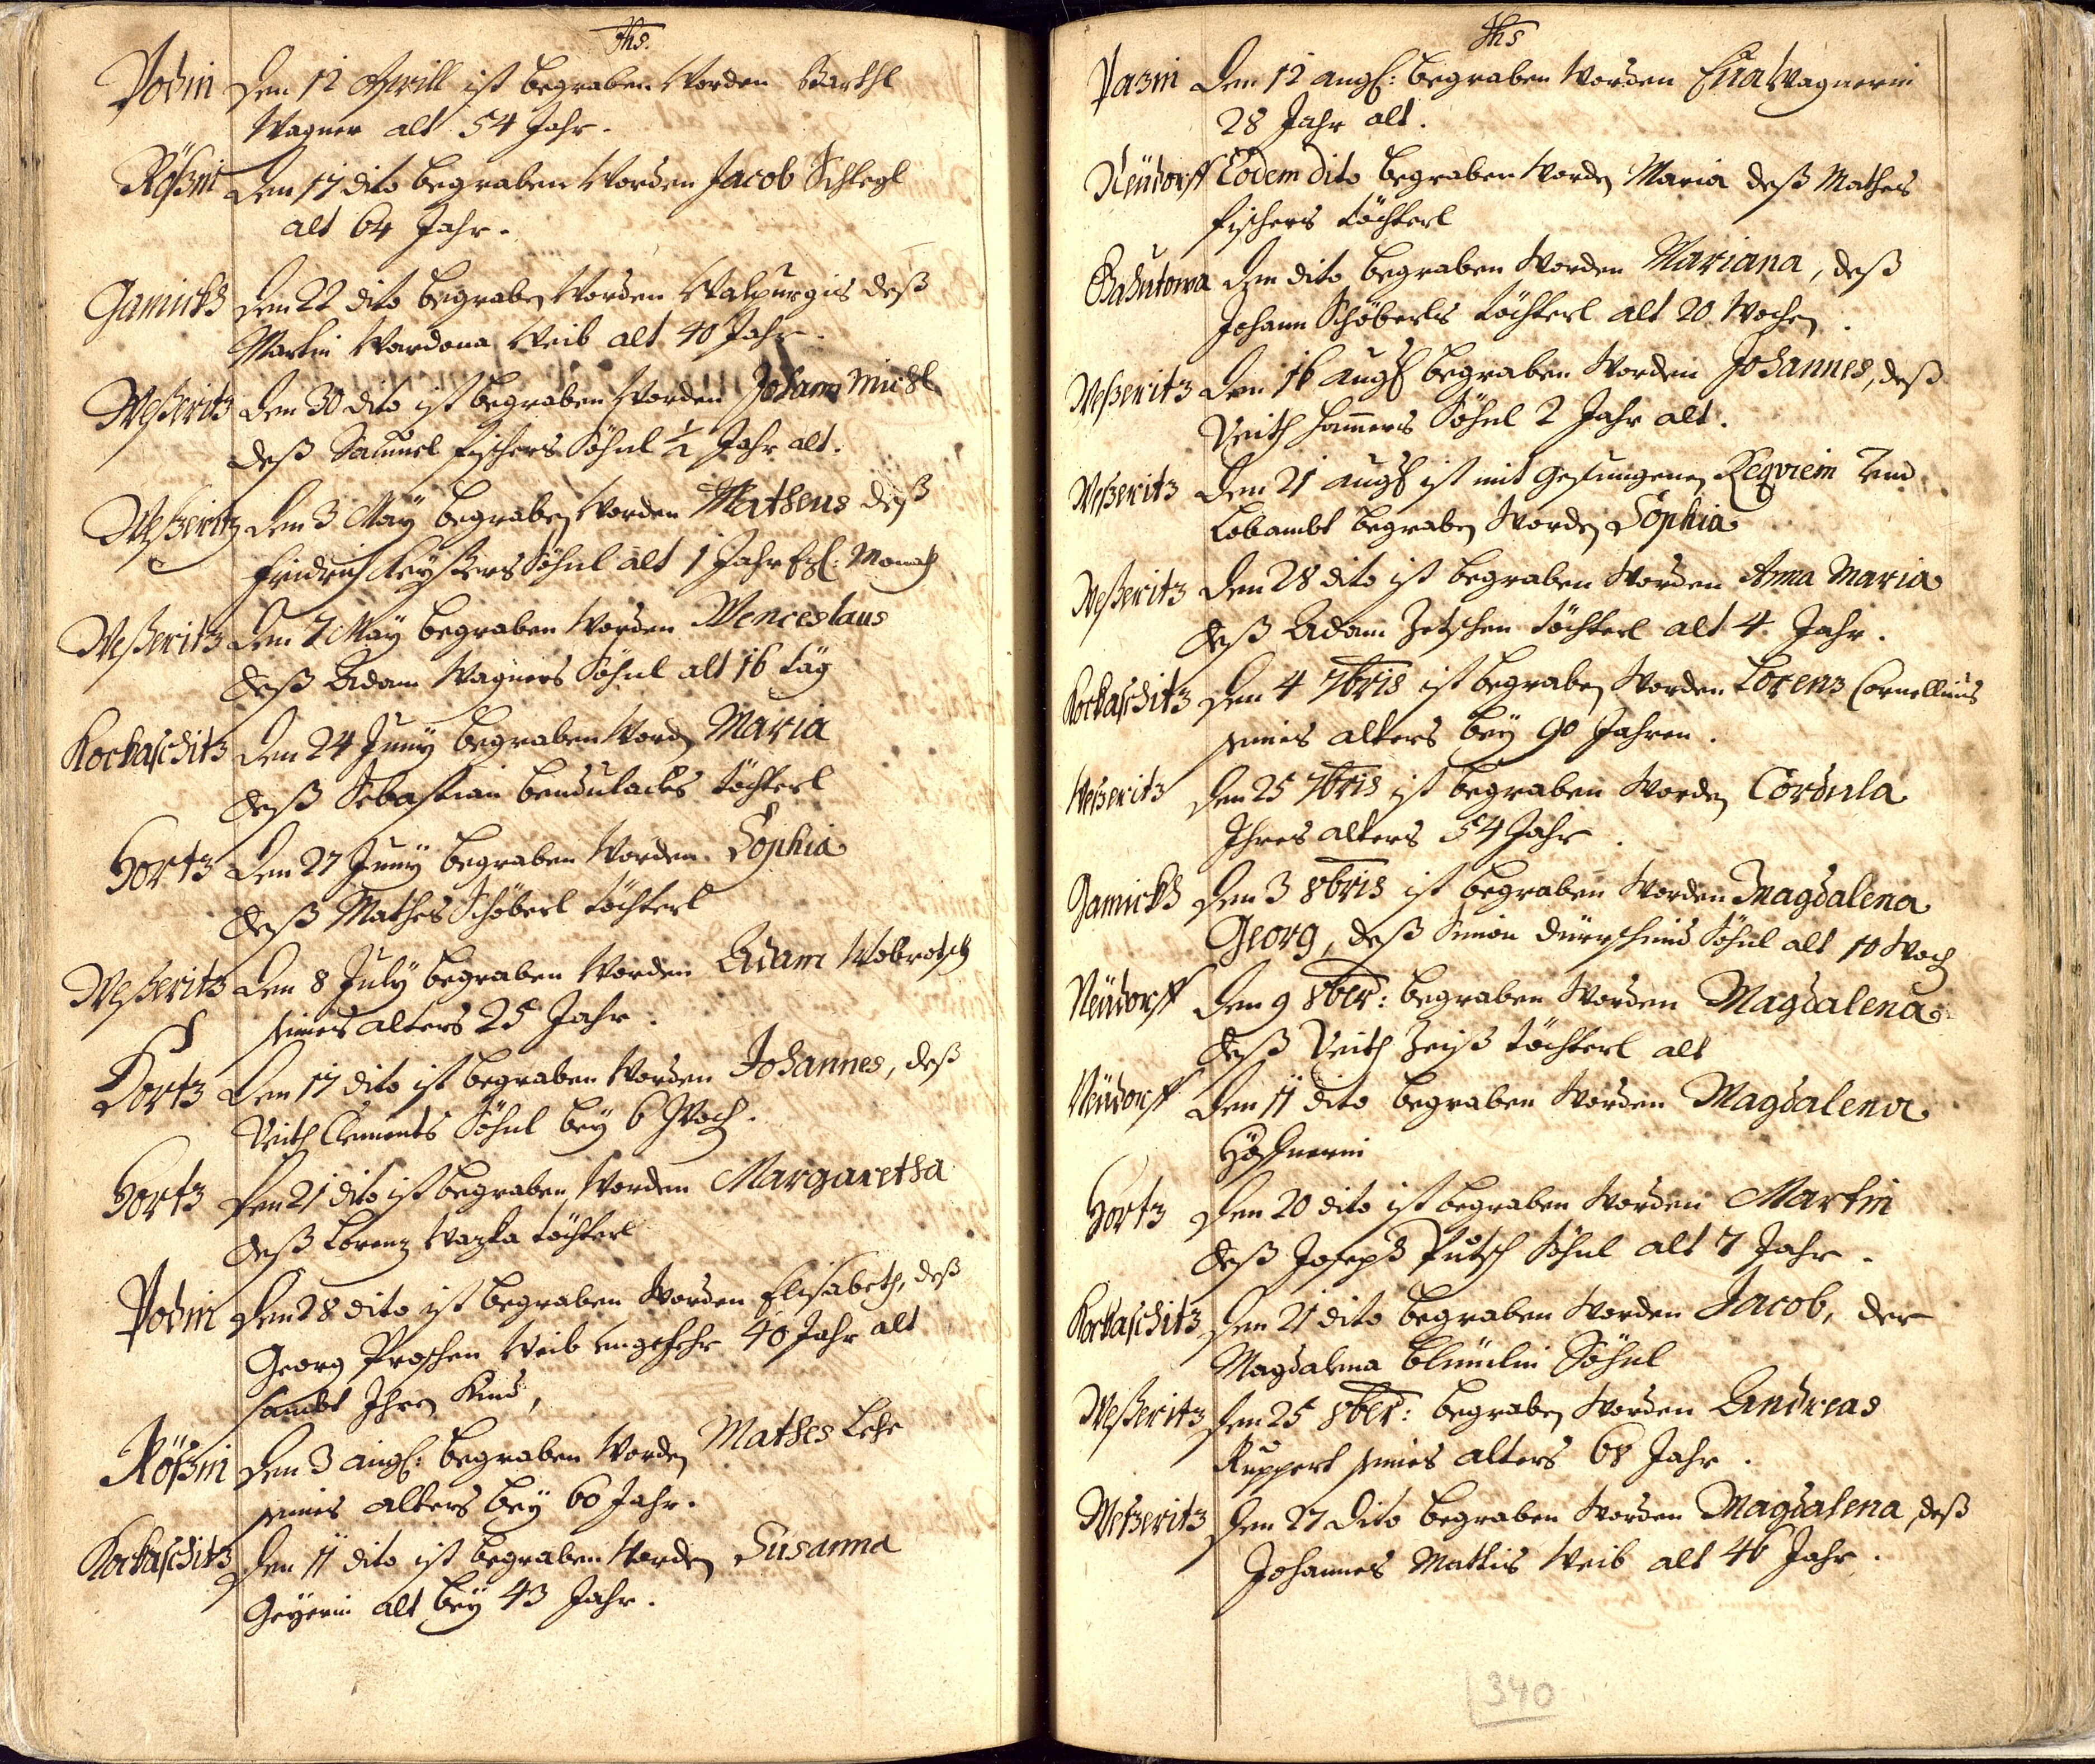 Jhs.
Podin Den 12 Aprill ist begraben worden Barthl
Wagner alt 54 Jahr.
Rößin Den 17 dito begraben worden Jacob Schlegl
alt 64 Jahr.
Gamickß Den 22 dito begraben worden Walpurgis deß
Martin Wardona Weib alt 40 Jahr.
Weßeritz Den 30 dito ist begraben worden Johann Michl
deß Samuel Fischers Söhnl ½ Jahr alt.
Weßeritz Den 3 May begraben worden Matheus deß
Fridrich Söhnl alt 1 Jahr Monath
Weßeritz Den 7 May begraben worden Wenceslaus
deß Adam Wagners Söhnl alt 16 täg
Kockaschitz Den 24 Juny begraben word Maria
deß Sebastian Bendulacks töchterl
Hortz Den 27 Juny begraben worden Sophia
deß Mathes Schöberl töchterl
Weßeritz Den 8 July begraben worden Adam Wobrotsch
seines alters 25 Jahr.
Hortz Den 17 dito ist begraben worden Johannes, deß
Veith Clements Söhnl bey 6 Woch.
Hortz Den 21 dito ist begraben worden Margaretha
deß Lorenz Wazka töchterl
Podin Den 28 dito ist begraben worden Elisabeth, deß
Georg Proschen Weib ungefehr 40 Jahr alt
sambt Ihren Kind,
Rößin Den 3 aug: begraben worden Mathes
seines alters bey 60 Jahr.
Kockaschitz Den 11 dito ist begraben worden Susanna
Geyerin alt bey 43 Jahr.
Jhs
Den 12 aug: begraben worden Eua Wagnerin
28 Jahr alt.
Neüdorff Eodem dito begraben worden Maria deß Mathes
Fischers töchterl
Den dito begraben worden Mariana, deß
Johann Schöberls töchterl alt 20 Wochen.
Weßeritz Den 16 aug begraben worden Johannes, deß
Veith Hamers Söhnl 2 Jahr alt.
Weßeritz Den 21 aug ist mit gesungenen Reqviem und
Lobambt begraben worden Sophia
Weßeritz Den 28 dito ist begraben worden Anna Maria
deß Adam Zetschen töchterl alt 4 Jahr.
Kockaschitz Den 4 7bris ist begraben worden Lorenz Cornellius
seines alters bey 90 Jahren.
Weßeritz Den 25 7bris ist begraben worden Cordula
Ihres alters 54 Jahr.
Gamickß Den 3 8bris ist begraben worden Magdalena
Georg, deß Simon Söhnl alt 10 Woch
Neüdorff Den 9 8ber: begraben worden Magdalena
deß Veith Zeiß töchterl alt
Neüdorff Den 11 dito begraben worden Magdalena
Hortz Den 20 dito ist begraben worden Martin
deß Joseph Putsch Söhnl alt 7 Jahr.
Kockaschitz Den 21 dito begraben worden Jacob, der
Magdalena Söhnl
Weßeritz Den 25 8ber: begraben worden Andreas
Ruppert seines alters 68 Jahr.
Weßeritz Den 27 dito begraben worden Magdalena, deß
Johannes Mattis Weib alt 46 Jahr.
340